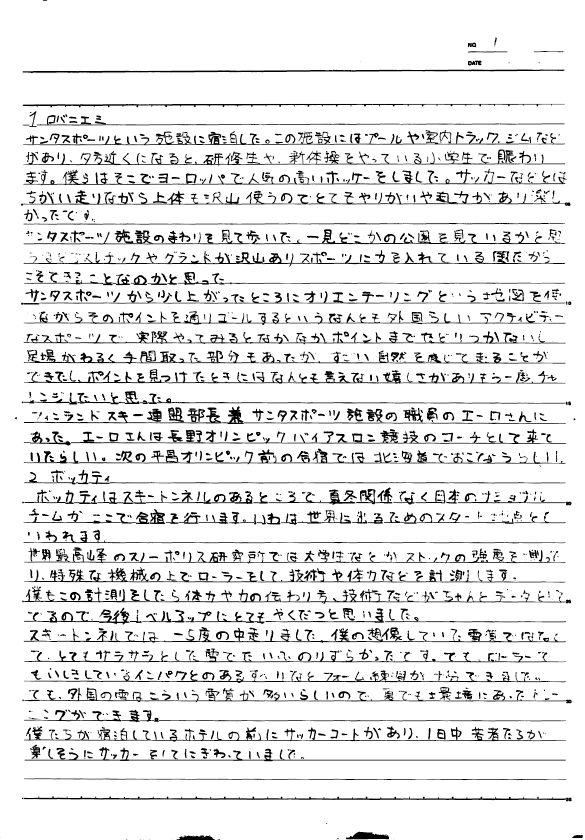 NO 1
DATE
1 ロバニエミ
サンタスポーツという施設に宿泊した。この施設にはプールや室内トラック、ジムなど
があり、夕方近くになると、研修生や、新体操をやっている小学生で賑わい
ます。僕らはそこでヨーロッパで人気の高いホッケーをしました。サッカーなどとは
ちがい走りながら上体も沢山使うのでとてもやりがいや迫力があり楽し
かったです。
サンタスポーツ施設のまわりを見て歩いた、一見どこかの公園を見ているかと思
アスレチックやグランドが沢山ありスポーツに力を入れている国だから
こそできることなのかと思った
サンタスポーツから少し上がったところにオリエンテーリングという地図を使
いながらそのポイントを通りゴールするというなんとも外国らしいアクティビティー
なスポーツで、実際やってみるとなかなかポイントまでたどりつかないし
足場がわるく手間取った部分もあったが、すごい自然を感じて走ることが
できたし、ポイントを見つけたときにはなんとも言えない嬉しさがありもう一度、チャ
レンジしたいと思った。
フィンランドスキー連盟部長兼サンタスポーツ施設の職員のエーロさんに
あった。エーロさんは長野オリンピックバイアスロン競技のコーチとして来て
いたらしい。次の平昌オリンピック前の合宿では北海道でおこなうらしい。
2 ボッカティ
ボッカティはスキートンネルのあるところで、夏冬関係なく日本のナショナル
チームがここで合宿を行います。いわば世界に出るためのスタート地点とも
いわれます
世界最高峰のスノーポリス研究所では大学生などがストックの強度を
り、特殊な機械の上でローラーをして、技術や体力などを計測します。
僕もこの計測をしたら体力や力の伝わり方、技術などがちゃんとデータとして
でるので、今後レベルアップにとてもやくだつと思いました。
スキートンネルでは、-5度の中走りました、僕の想像していた雪質ではなく
て、とてもサラサラとした雪でだいぶのりずらかったです。でも、
インパクとのあるすべりなどフォーム練習ができました。
でも、外国の雪はこういう雪質が多いらしいので、夏でも環境にあったトレー
ニングができます。
僕たちが宿泊しているホテルの前にサッカーコートがあり、1日中若者たちが
楽しそうにサッカーをしてにぎわっていました。